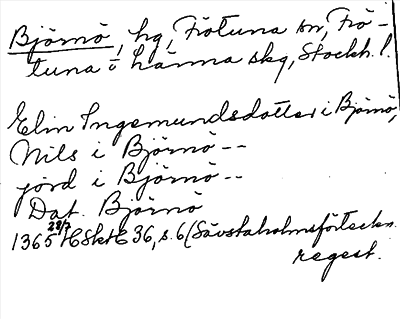 Björnö, hg, Frötuna sn, Frö-
tuna o Länna skg, Stockh. l.
Elin Ingemundsdotter i Björnö,
Nils i Björnö --
jord i Björnö --
Dat. Björnö
1365 28/7 HSkH 36, s. 6 (Sävstaholmsförteckn.
regest.